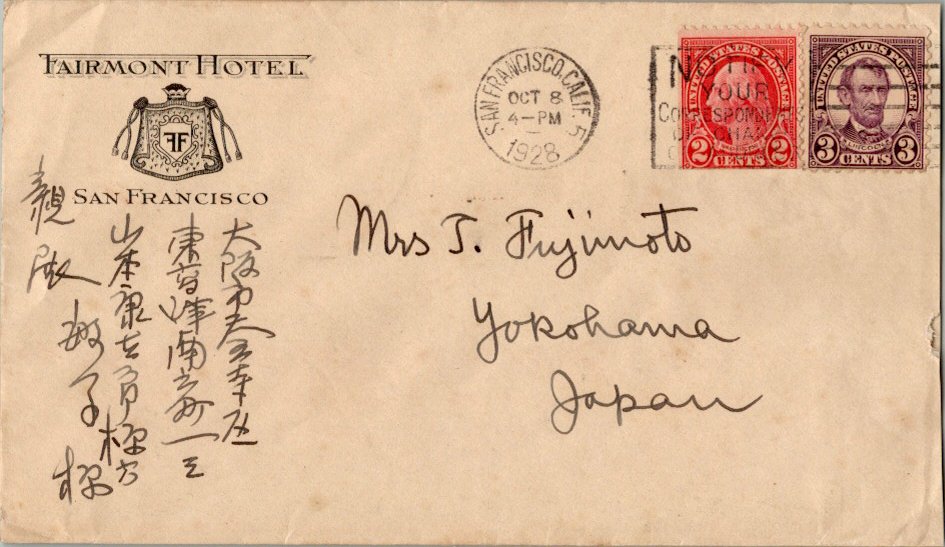 FAIRMONT HOTEL
FF
SAN FRANCISCO
SAN FRANCISCO, CALIF. 5
OCT 8
4-PM
1928
NOTIFY
YOUR
CORRESPONDENTS
OF CHANGE
UNITED STATES POSTAGE
2 CENTS 2
UNITED STATES POSTAGE
LINCOLN
3 CENTS 3
Mrs T. Fujimoto
Yokohama
Japan
大阪市天王寺区
東高津南之町一三
山本康左右門様方
敏子様
親展